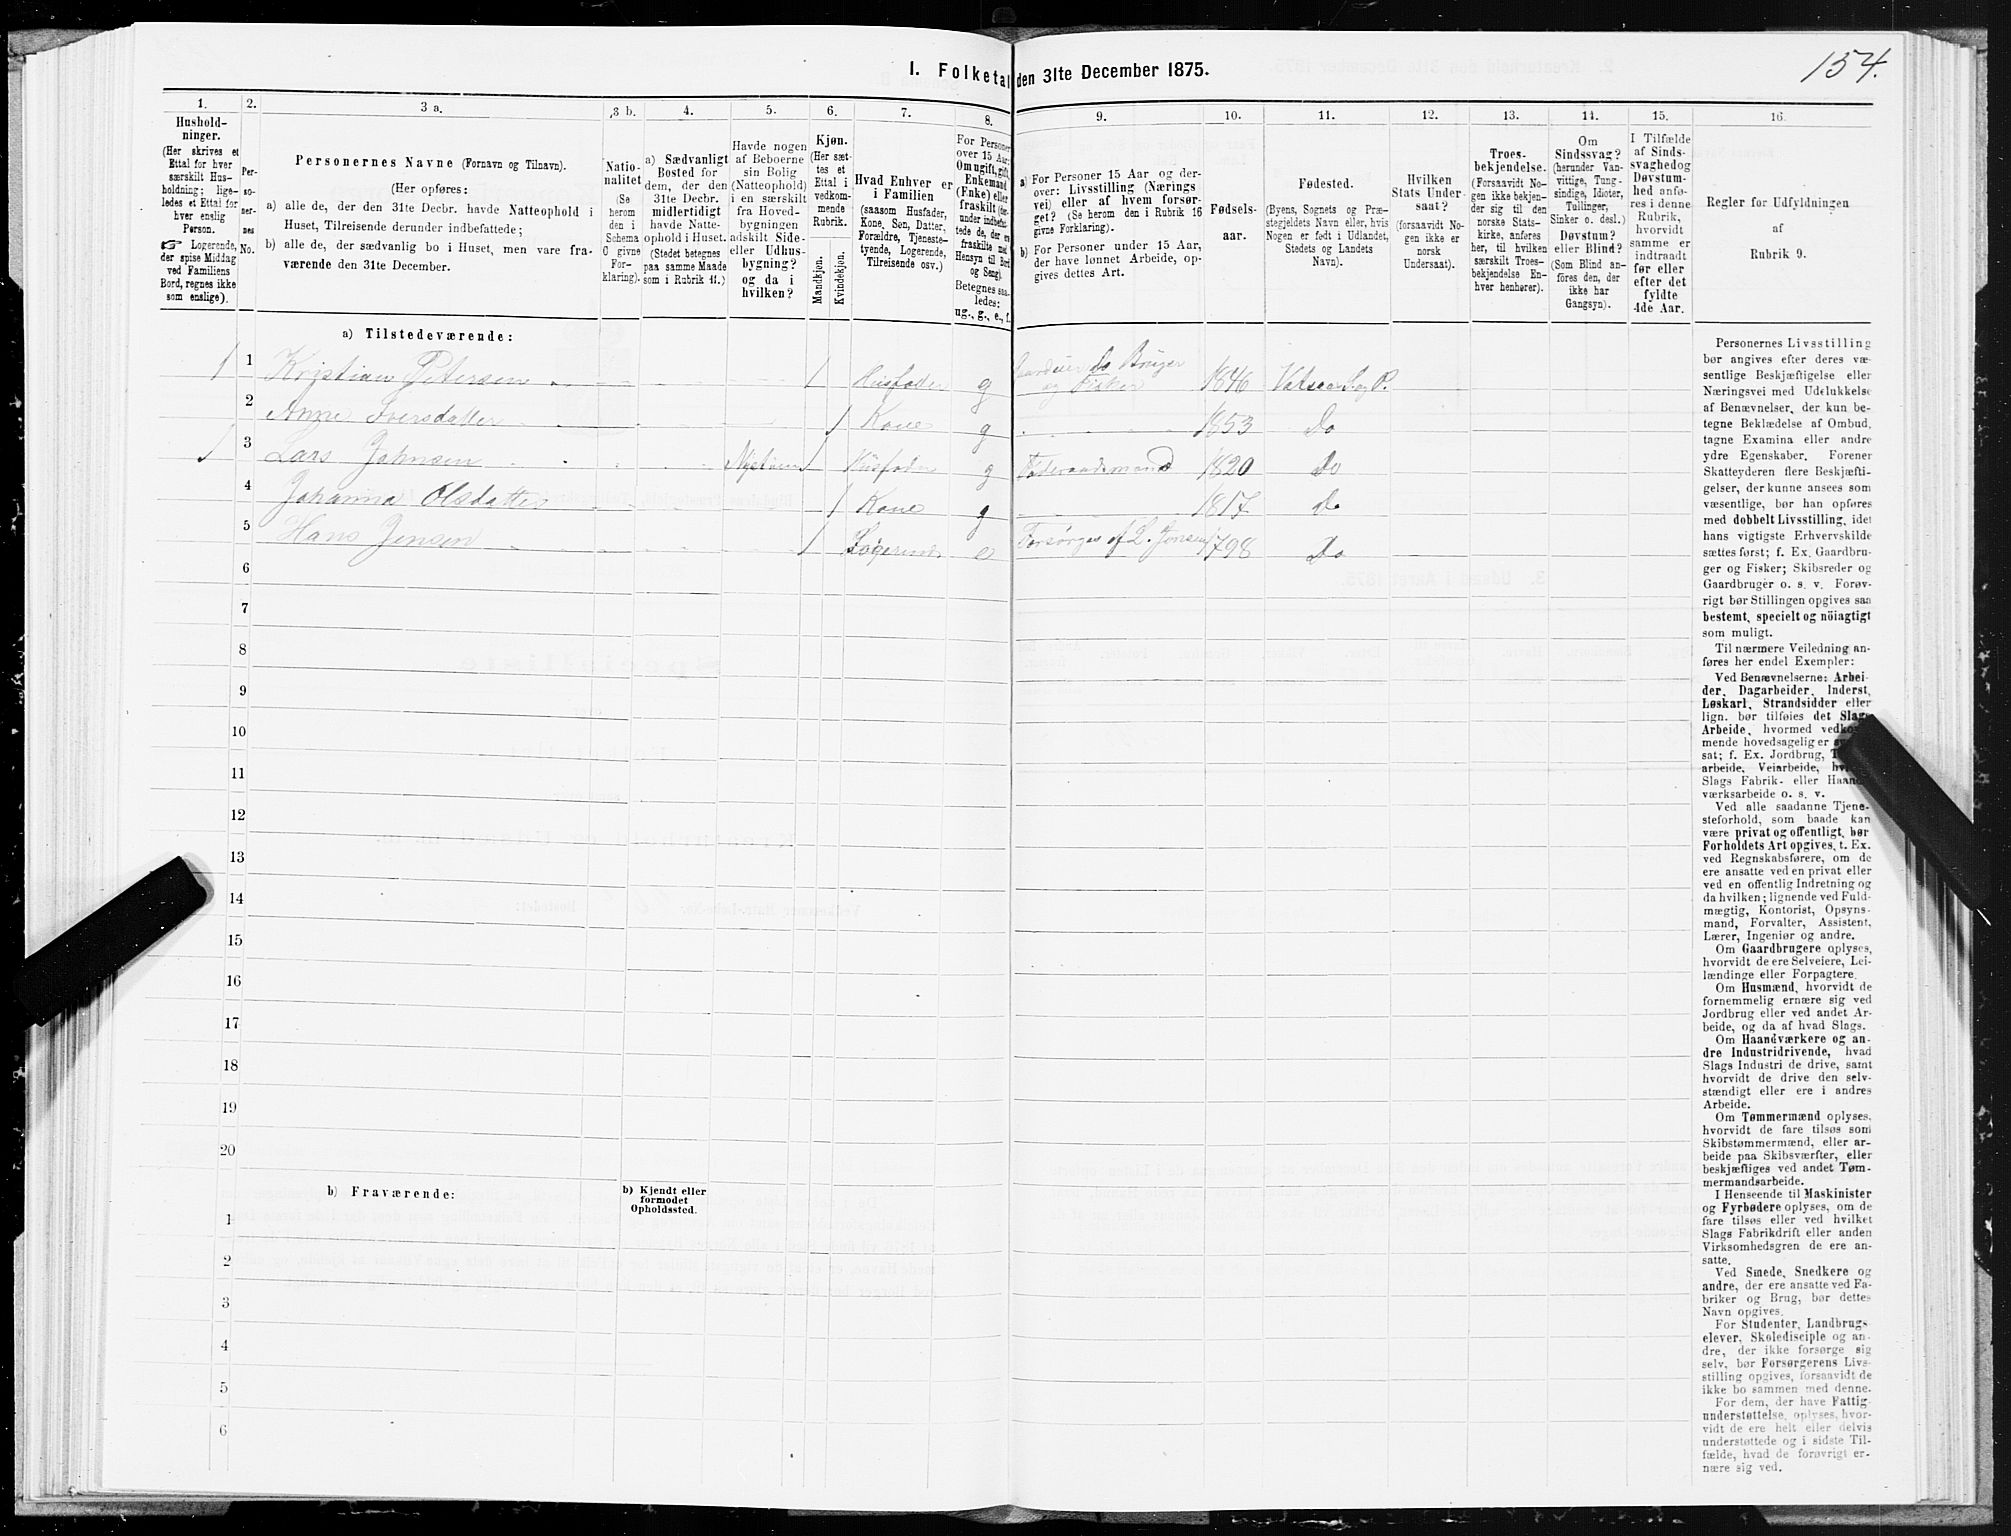 154.
I. Folketal den 31te December 1875.
1.
Hushold-
ninger.
(Her skrives et
Ettal for hver
særskilt Hus-
holdning; lige-
ledes et Ettal for
hver enslig
Person.
☞ Logerende,
der spise Middag
ved Familiens
Bord, regnes ikke
som enslige).
2.
Per-
so-
ner-
nes
No.
3 a.
Personernes Navne (Fornavn og Tilnavn).
(Her opføres:
a) alle de, der den 31te Decbr. havde Natteophold i
Huset, Tilreisende derunder indbefattede;
b) alle de, der sædvanlig bo i Huset, men vare fra-
værende den 31te December.
3 b.
Natio-
nalitet
(Se
herom
den i
Schema
C givne
For-
klaring).
4.
a) Sædvanligt
Bosted for
dem, der den
31te Decbr.
midlertidigt
havde Natte-
ophold i Huset.
(Stedet betegnes
paa samme Maade
som i Rubrik 11.)
5.
Havde nogen
af Beboerne
sin Bolig
(Natteophold)
i en særskilt
fra Hoved-
bygningen
adskilt Side-
eller Udhus-
bygning?
og da i
hvilken?
6.
Kjøn.
(Her sæt-
tes et
Ettal i
vedkom-
mende
Rubrik.
Mandkjøn.
Kvindekjøn.
7.
Hvad Enhver er
i Familien
(saasom Husfader,
Kone, Søn, Datter,
Forældre, Tjeneste-
tyende, Logerende,
Tilreisende osv.)
8.
For Personer
over 15 Aar:
Om ugift, gift,
Enkemand
(Enke) eller
fraskilt (der-
under indbefat-
tede de, der ere
fraskilte med
Hensyn til Bord
og Seng).
Betegnes saa-
ledes:
ug., g., e., f.
9.
a) For Personer 15 Aar og der-
over: Livsstilling (Nærings
vei) eller af hvem forsør-
get? (Se herom den i Rubrik 16
givne Forklaring).
b) For Personer under 15 Aar,
der have lønnet Arbeide, op-
gives dettes Art.
10.
Fødsels-
aar.
11.
Fødested.
(Byens, Sognets og Præ-
stegjeldets Navn eller, hvis
Nogen er født i Udlandet,
Stedets og Landets
Navn).
12.
Hvilken
Stats Under-
saat?
(forsaavidt No-
gen ikke er
norsk
Undersaat).
13.
Troes-
bekjendelse.
(Forsaavidt No-
gen ikke bekjen-
der sig til den
norske Stats-
kirke, anføres
her, til hvilken
særskilt Troes-
bekjendelse En-
hver henhører).
14.
Om
Sindssvag?
(herunder Van-
vittige, Tung-
sindige, Idioter,
Tullinger,
Sinker o. desl.)
Døvstum?
eller Blind?
(Som Blind an-
føres den, der
ikke har
Gangsyn).
15.
I Tilfælde
af Sinds-
svaghed og
Døvstum-
hed anfø-
res i denne
Rubrik,
hvorvidt
samme er
indtraadt
før eller
efter det
fyldte
4de Aar.
16.
Regler for Udfyldningen
af
Rubrik 9.
a) Tilstedeværende:
1 1 Kristian Petersen 1 Husfader g Gardeier Do Bruger og Fisker 1846 Vatsaas S. og P.
2 Anne Iversdatter 1 Kone g 1853 Do
1 3 Lars Johnsen 1 Husfader g Føderaadsmand 1820 Do
4 Johanna Olsdatter 1 Kone g 1817 Do
5 Hans Jensen 1 Logerende e Forsørges af L. Jonsen 1798 Do
6
7
8
9
10
11
12
13
14
15
16
17
18
19
20
b) Fraværende:
b) Kjendt eller
formodet
Opholdssted.
1
2
3
4
5
6
Personernes Livsstilling
bør angives efter deres væ-
sentlige Beskjæftigelse eller
Næringsvei med Udelukkelse
af Benævnelser, der kun be-
tegne Beklædelse af Ombud,
tagne Examina eller andre
ydre Egenskaber. Forener
Skatteyderen flere Beskjæfti-
gelser, der kunne ansees som
væsentlige, bør han opføres
med dobbelt Livsstilling, idet
hans vigtigste Erhvervskilde
sættes først; f. Ex. Gaardbru-
ger og Fisker; Skibsreder og
Gaardbruger o. s. v. Forøv-
rigt bør Stillingen opgives saa
bestemt, specielt og nöiagtigt
som muligt.
Til nærmere Veiledning an-
føres her endel Exempler:
Ved Benævnelserne: Arbei-
der, Dagarbeider, Inderst,
Løskarl, Strandsidder eller
lign. bør tilføies det Slags
Arbeide, hvormed vedkom-
mende hovedsagelig er
sat; f. Ex. Jordbrug,
arbeide, Veiarbeide,
Slags Fabrik- eller Haand-
værksarbeide o. s. v.
Ved alle saadanne Tjene-
steforhold, som baade kan
være privat og offentligt, bør
Forholdets Art opgives, t. Ex.
ved Regnskabsførere, om de
ere ansatte ved en privat eller
ved en offentlig Indretning og
da hvilken; lignende ved Fuld-
mægtig, Kontorist, Opsyns-
mand, Forvalter, Assistent,
Lærer, Ingeniør og andre.
Om Gaardbrugere oplyses,
hvorvidt de ere Selveiere, Lei-
lændinge eller Forpagtere.
Om Husmænd, hvorvidt de
fornemmelig ernære sig ved
Jordbrug eller ved andet Ar-
beide, og da af hvad Slags.
Om Haandværkere og an-
dre Industridrivende, hvad
Slags Industri de drive, samt
hvorvidt de drive den selv-
stændigt eller ere i andres
Arbeide.
Om Tømmermænd oplyses,
hvorvidt de fare tilsøs som
Skibstømmermænd, eller ar-
beide paa Skibsværfter, eller
beskjæftiges ved andet Tøm-
mermandsarbeide.
I Henseende til Maskinister
og Fyrbødere oplyses, om de
fare tilsøs eller ved hvilket
Slags Fabrikdrift eller anden
Virksomhedsgren de ere an-
satte.
Ved Smede, Snedkere og
andre, der ere ansatte ved Fa-
briker og Brug, bør dettes
Navn opgives.
For Studenter, Landbrugs-
elever, Skoledisciple og an-
dre, der ikke forsørge sig
selv, bør Forsørgerens Livs-
stilling opgives, forsaavidt de
ikke bo sammen med denne.
For dem, der have Fattig-
understøttelse, oplyses, hvor-
vidt de ere helt eller delvis
understøttede og i sidste Til-
fælde, hvad de forøvrigt er-
nære sig ved.